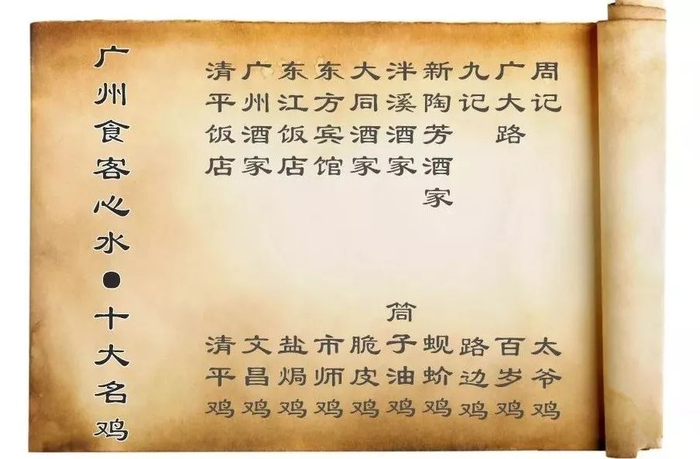 广州食客心水●十大名鸡
清平饭店 清平鸡
广州酒家 文昌鸡
东江饭店 盐焗鸡
东方宾馆 市师鸡
大同酒家 脆皮鸡
泮溪酒家 筒子油鸡
新陶芳酒家 蚬蚧鸡
九记 路边鸡
广大路 百岁鸡
周记 太爷鸡